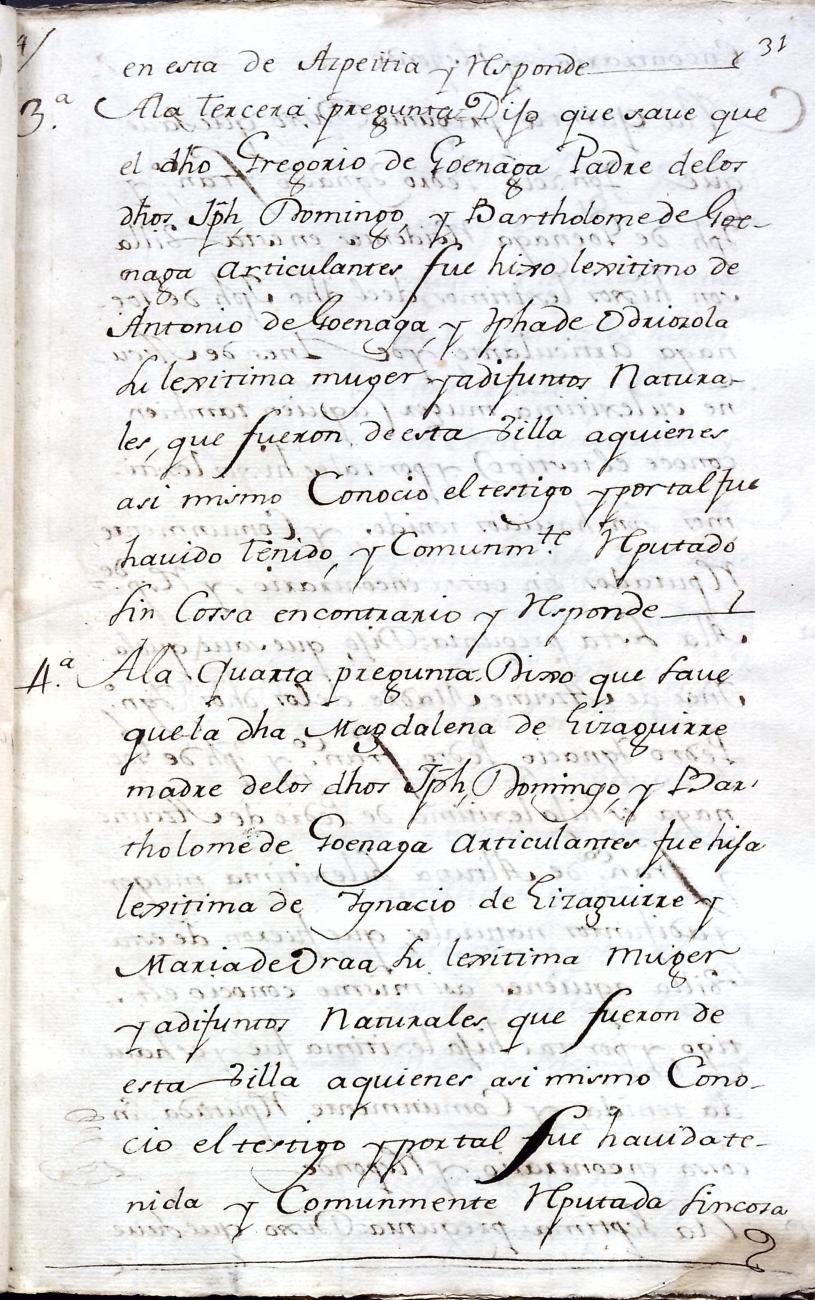 4/
31
en esta de Azpeitia y Responde
3.ª Ala tercera pregunta Dijo que save que
el dho Gregorio de Goenaga Padre delos
dhos Jph, Domingo, y Bartholome de Goe-
naga Articulantes fue hixo lexitimo de
Antonio de Goenaga, y Jpha de Odriozola
su lexitima muger yadifuntos Natura-
les, que fueron deesta Villa aquienes
asi mismo Conocio el testigo yportal fue
havido tenido, y Comunmte. Reputado
sin Cossa encontrario y Responde
4.ª Ala Quarta pregunta Dixo que save
que la dha Magdalena de Eizaguirre
madre delos dhos Jph, Domingo, y Bar-
tholome de Goenaga Articulantes fue hija
lexitima de Ygnacio de Eizaguirre y
Maria de Oraa su lexitima Muger
yadifuntos Naturales que fueron de
esta Villa aquienes asi mismo Cono-
cio el testigo yportal fue havida te-
nida y Comunmente Reputada sin cosa